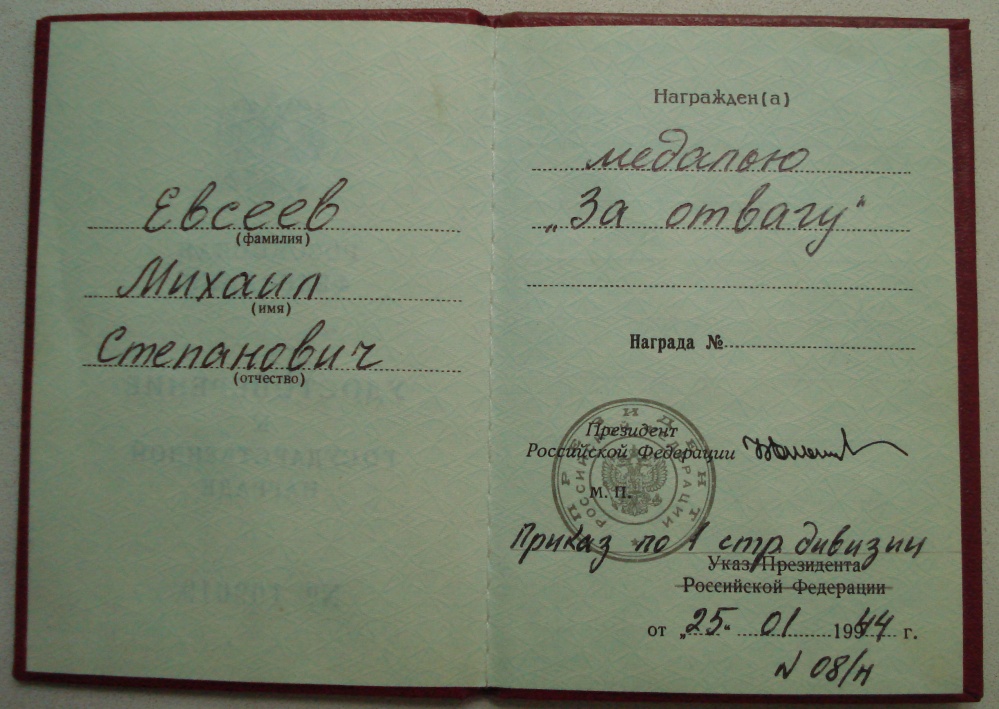 Евсеев
(фамилия)
Михаил
(имя)
Степанович
(отчество)
Награжден(а)
медалью
„За отвагу“
Награда №
ПРЕЗИДЕНТ
РОССИЙСКОЙ ФЕДЕРАЦИИ
Президент
Российской Федерации
М. П.
Приказ по 1 стр. дивизии
Указ Президента
Российской Федерации
от „25“ 01 1944 г.
N 08/н